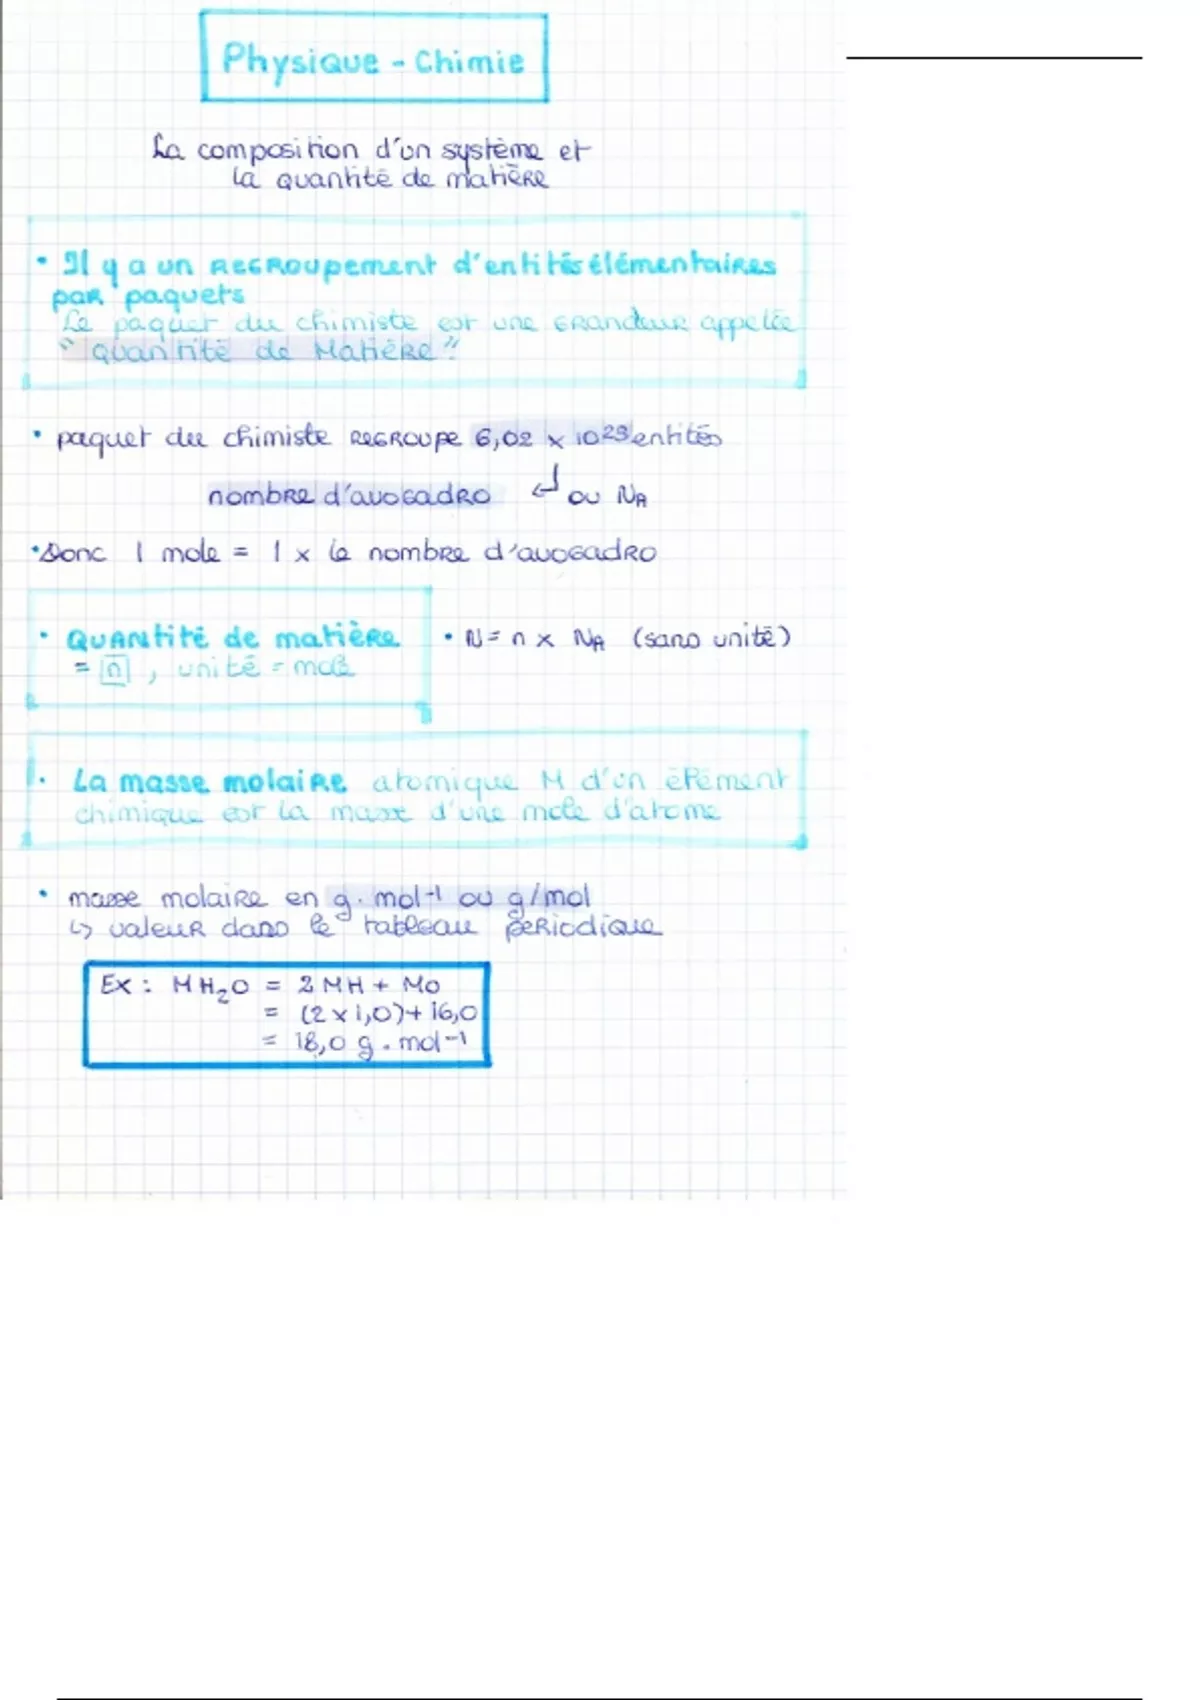 Physique - Chimie
La composition d'un système et
la quantité de matière
• Il y a un regroupement d'entités élémentaires
par paquets
Le paquet du chimiste est une grandeur appelée
"Quantité de Matière".
• paquet du chimiste regroupe 6,02 x 10²³ entités
nombre d'avogadro ↵ ou NA
• Donc 1 mole = 1 x le nombre d'avogadro
• Quantité de matière
= n , unité = mole
• N = n x NA (sans unité)
• La masse molaire atomique M d'un élément
chimique est la masse d'une mole d'atome
• masse molaire en g. mol-1 ou g/mol
↳ valeur dans le tableau periodique
Ex : M H₂O = 2 MH + MO
= (2 x 1,0) + 16,0
= 18,0 g. mol-1